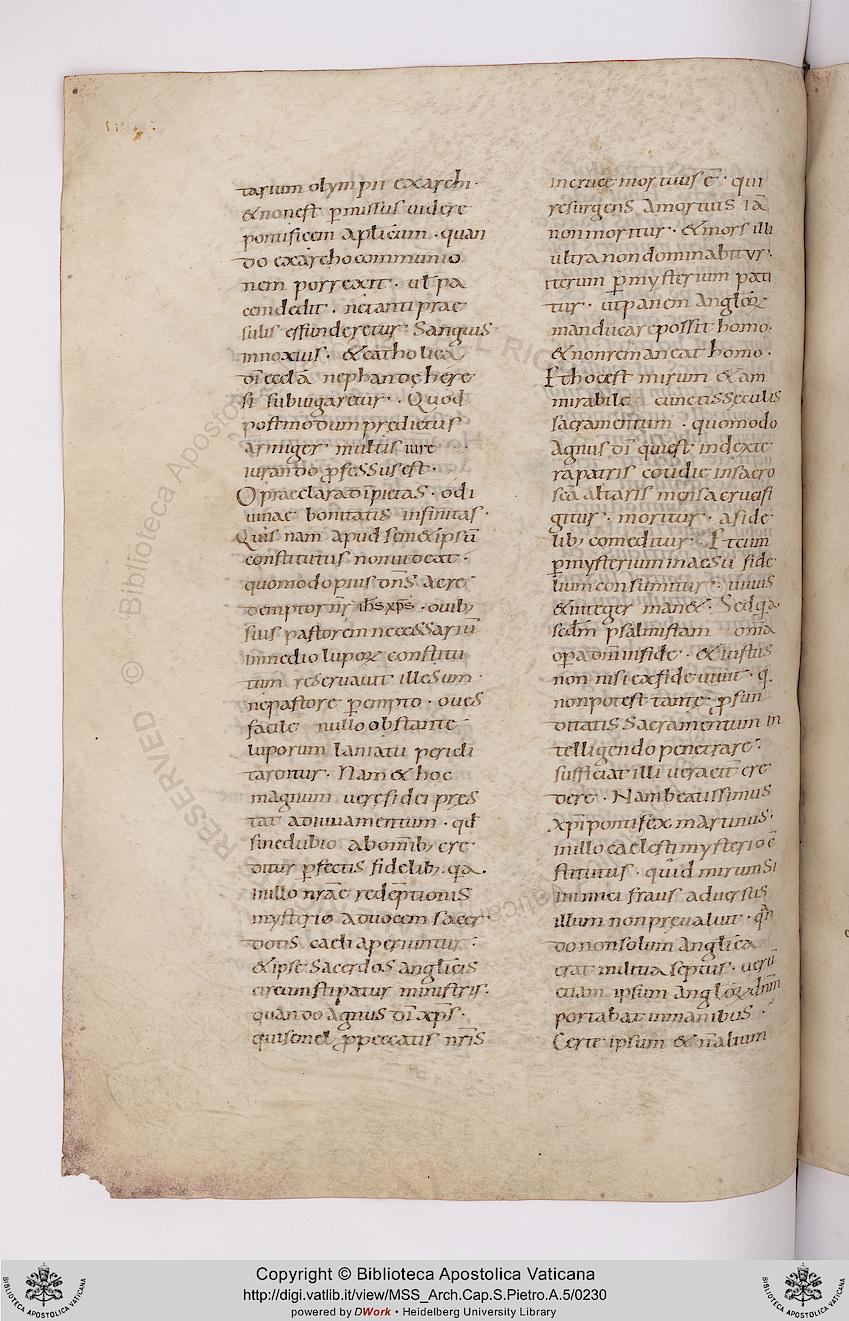 tarium olympii exarchi ·
& non est p̄missus uidere
pontificem ap̄licum · quan
do exarcho communio
nem porrexit · ul̄ pa
cem dedit · ne ianti prae
sulis effunderetur sanguis
innoxius · & catholica
dī eccl̄a nephandę here
si subiugaretur · Quod
postmodum predictus
armiger multis iure
iurando p̄fessus est ·
O praeclara dī pietas · o di
uinae bonitatis infinitas ·
Quis nam apud semetipsū
constitutus non uideat ·
quomodo pius dn̄s ac re
demptor nr̄ ihs xp̄s · ouib;
suis pastorem necessariū
in medio lupoꝝ constitu
tum reseruauit illesum ·
ne pastore p̄empto · oues
facile nullo obstante
luporum laniatu pericli
tarentur · Nam & hoc
magnum uere fidei pres
tat adiuuamentum · qd̄
sine dubio ab omib; cre
ditur p̄fectis fidelib; · qa ·
in illo nr̄ae redēptionis
mysterio ad uocem sacer
dotis caeli aperiuntur :
& ipse sacerdos anglicis
circumstipatur ministris ·
quando agnus dī xp̄s ·
qui semel p̄ peccatis nr̄is
in cruce mortuus ē · qui
resurgens a mortuis iā
non moritur · & mors illi
ultra non dominabitur ·
iterum p̄ mysterium pati
tur · ut panem angloꝝ
manducare possit homo ·
& non remaneat homo ·
Et hoc est mirum & am
mirabile cunctis seculis
sacramentum · quomodo
agnus dī qui est in dexte
ra patris cotidie in sacro
sc̄a altaris mensa crucifi
gitur · moritur · a fide
lib; comeditur · Et cum
p̄ mysterium in aesu fide
lium consumitur · uiuus
& integer man& · Sed q̄a ·
secdm̄ psalmistam om̄ia
op̄a dn̄i in fide · & iustus
non nisi ex fide uiuit · q̄ ·
non potest tante p̄fun
ditatis sacramentum in
telligendo penetrare ·
sufficiat illi ueracit̄ cre
dere · Nam beatissimus
xp̄i pontifex martinus ·
in illo caelesti mysterio cō
stitutus · quid mirum si
inimici fraus aduersus
illum non preualuit · q̄n
do non solum anglica
erat militia septus · uerū
etiam ipsum angloꝝ dn̄m
portabat in manibus ·
Certe ipsum & n̄ alium
Copyright © Biblioteca Apostolica Vaticana
http://digi.vatlib.it/view/MSS_Arch.Cap.S.Pietro.A.5/0230
powered by DWork • Heidelberg University Library